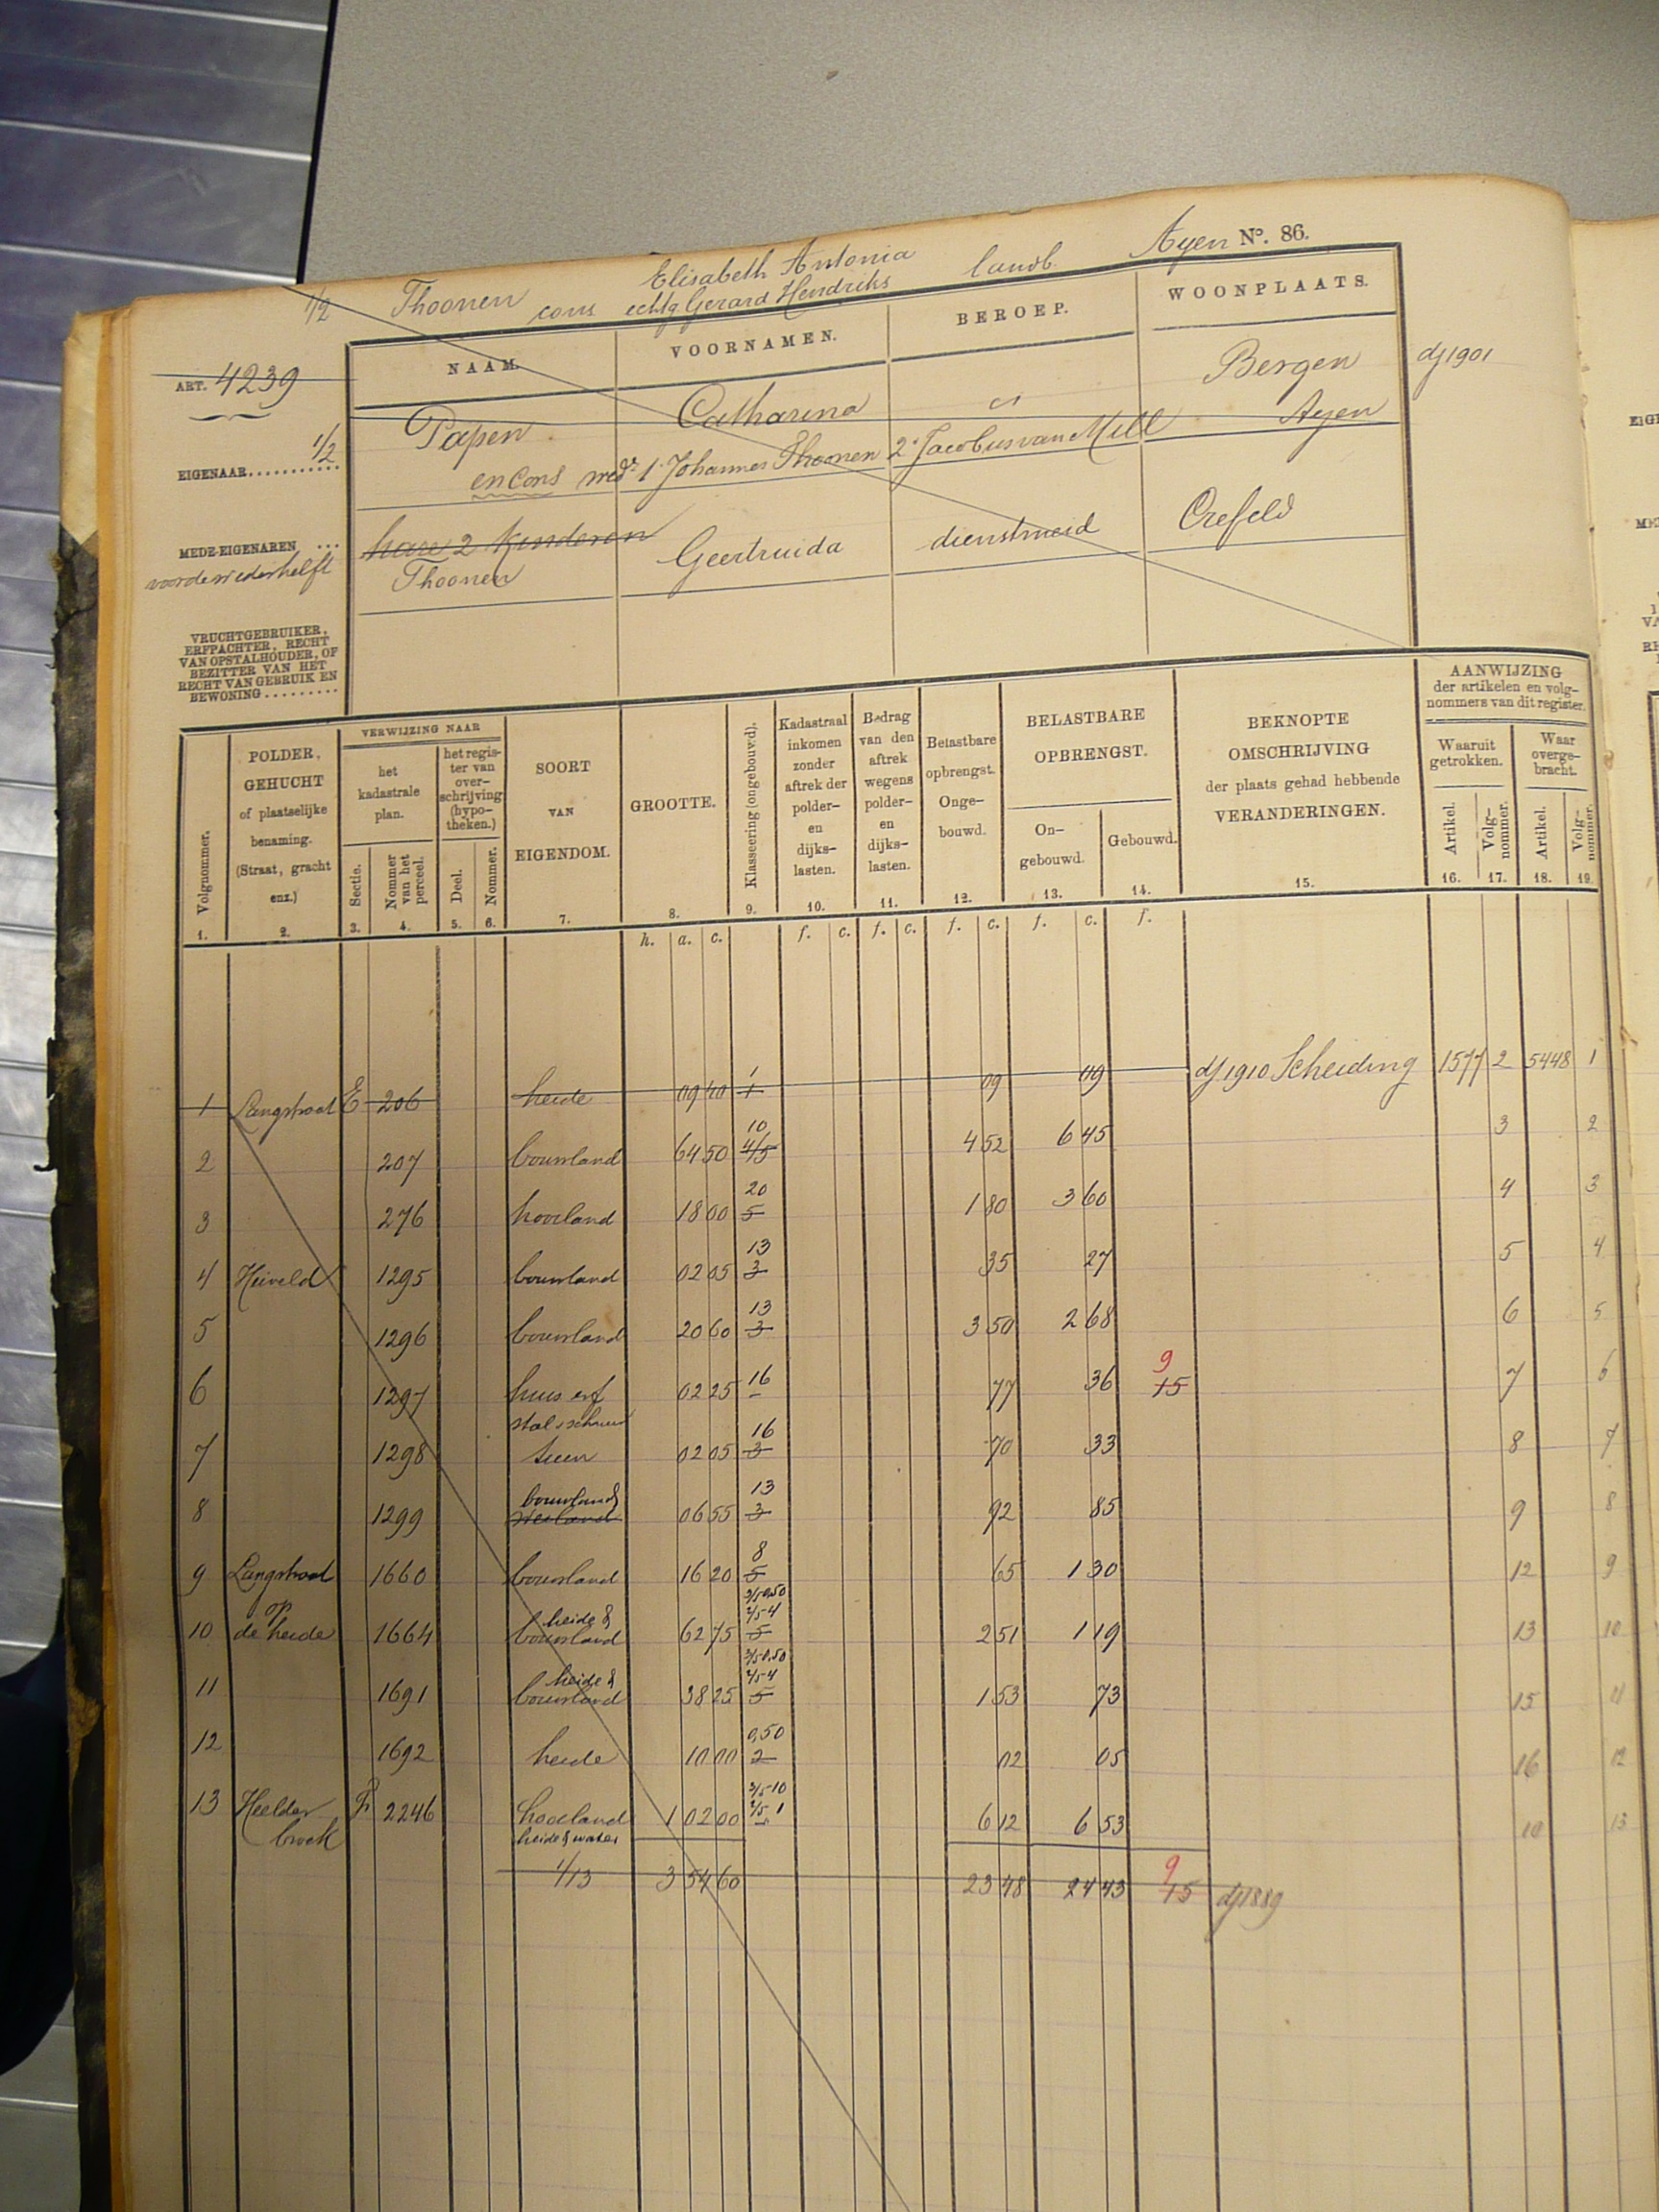 Ayen Nº. 86.
1/2 Thoonen Elisabeth Antonia landb.
cons echtg. Gerard Hendriks
NAAM. VOORNAMEN. BEROEP. WOONPLAATS.
ART. 4239
Bergen dj 1901
EIGENAAR........... 1/2 Papen Catharina Ayen
en Cons wedᵉ 1. Johannes Thoonen 2. Jacobus van Mill
MEDE-EIGENAREN ... hare 2 kinderen
voor de wederhelft Thoonen Geertruida dienstmeid Crefeld
VRUCHTGEBRUIKER,
ERFPACHTER, RECHT
VAN OPSTALHOUDER, OF
BEZITTER VAN HET
RECHT VAN GEBRUIK EN
BEWONING.........
Volgnummer.
POLDER,
GEHUCHT
of plaatselijke
benaming.
(Straat, gracht
enz.)
VERWIJZING NAAR
het
kadastrale
plan.
Sectie.
Nommer
van het
perceel.
het regis-
ter van
over-
schrijving
(hypo-
theken.)
Deel.
Nommer.
SOORT
VAN
EIGENDOM.
GROOTTE.
Klasseering (ongebouwd).
Kadastraal
inkomen
zonder
aftrek der
polder-
en
dijks-
lasten.
Bedrag
van den
aftrek
wegens
polder-
en
dijks-
lasten.
Belastbare
opbrengst.
Onge-
bouwd.
BELASTBARE
OPBRENGST.
On-
gebouwd.
Gebouwd.
BEKNOPTE
OMSCHRIJVING
der plaats gehad hebbende
VERANDERINGEN.
AANWIJZING
der artikelen en volg-
nommers van dit register.
Waaruit
getrokken.
Artikel.
Volg-
nommer.
Waar
overge-
bracht.
Artikel.
Volg-
nommer.
1. 2. 3. 4. 5. 6. 7. 8. 9. 10. 11. 12. 13. 14. 15. 16. 17. 18. 19.
h. a. c. f. c. f. c. f. c. f. c. f.
1 Langstraat E 206 heide 09 40 1 1 09 09 dj 1910 Scheiding 1577 2 5448 1
2 207 bouwland 64 50 10 4/5 4 52 6 45 3 2
3 276 hooiland 18 00 20 5 1 80 3 60 4 3
4 Heiveld 1295 bouwland 02 05 13 3 35 27 5 4
5 1296 bouwland 20 60 13 3 3 50 2 68 6 5
6 1297 huis erf 02 25 16 77 36 9 15 7 6
stal & schuur
7 1298 tuin 02 05 16 3 70 33 8 7
8 1299 bouwland weiland 06 55 13 3 92 85 9 8
9 Langstraat 1660 bouwland 16 20 8 5 65 1 30 12 9
10 op de heide 1664 heide & bouwland 62 75 3/5 0,50 2/5-4 5 2 51 1 19 13 10
11 1691 heide & bouwland 38 25 3/5 0,50 2/5-4 5 1 53 73 15 11
12 1692 heide 10 00 0,50 2 02 05 16 12
13 Heelder F 2246 hooiland 1 02 00 3/5-10 2/5 1 6 12 6 53 10 13
broek heide & water
1/13 3 54 60 23 48 24 43 9 15 dj 1889